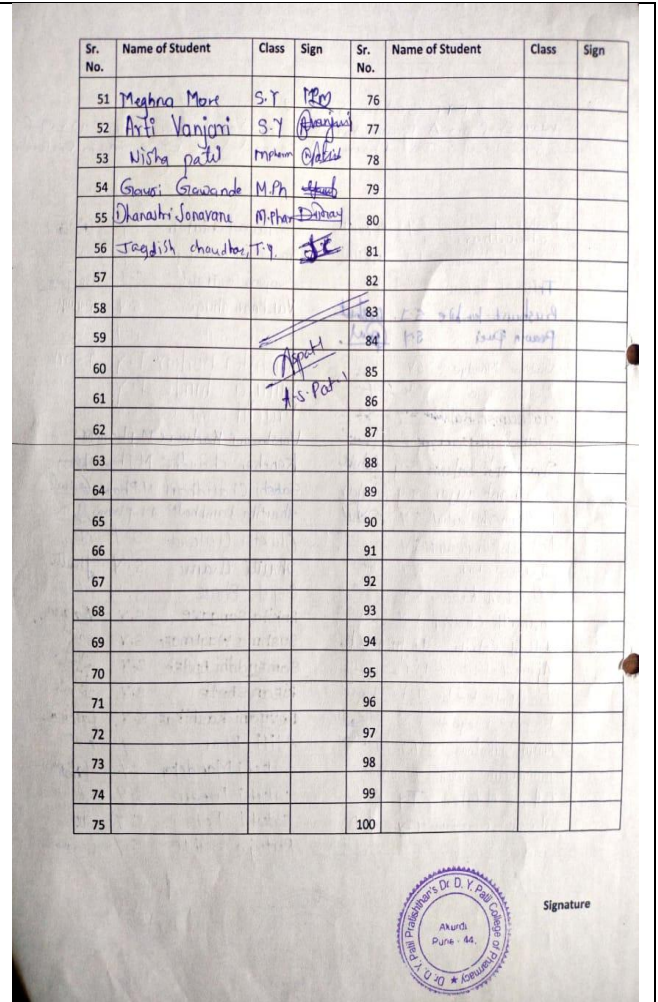 Sr. No. Name of Student Class Sign Sr. No. Name of Student Class Sign
51 Meghna More S.Y 76
52 Arti Vanjari S.Y Avanjari 77
53 Nisha patil Mpharm 78
54 Gauri Gawande M.Ph 79
55 Dhanashri Sonavane M.Phar 80
56 Jagdish choudhar, T.y. 81
57 82
58 83
59 84
60 85
A.S. Patil
61 86
62 87
63 88
64 89
65 90
66 91
67 92
68 93
69 94
70 95
71 96
72 97
73 98
74 99
75 100
Signature
Dr. D. Y. Patil Pratishthan's Dr. D. Y. Patil College of Pharmacy
Akurdi
Pune - 44.